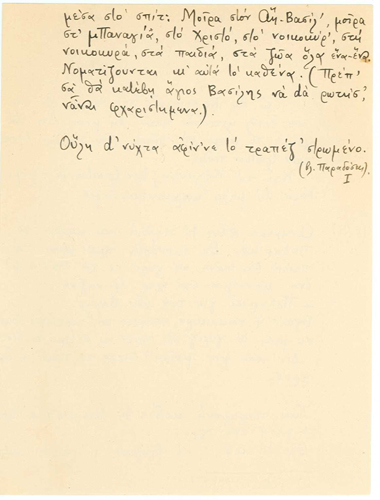 μέσα στο σπίτ: Μοῖρα στόν Ἁη-Βασίλ', μοῖρα
στ' μΠαναγιά, στό Χριστό, στό νοικοκύρ', στή
νοικοκυρά, στά παιδιά, στά ζῶα ὅλα ἕνα-ἕνα.
Νοματίζουνται κι' αὐτά τό καθένα. (Πρέπ'
σά θά κατέβη ἅγιος Βασίλης νά dά ρωτήσ',
νἆναι φχαριστημένα.)
Οὕλη d' νύχτα ἀφίν'νε τό τραπέζ' στρωμένο.
(βλ. Παραδόσεις)
I